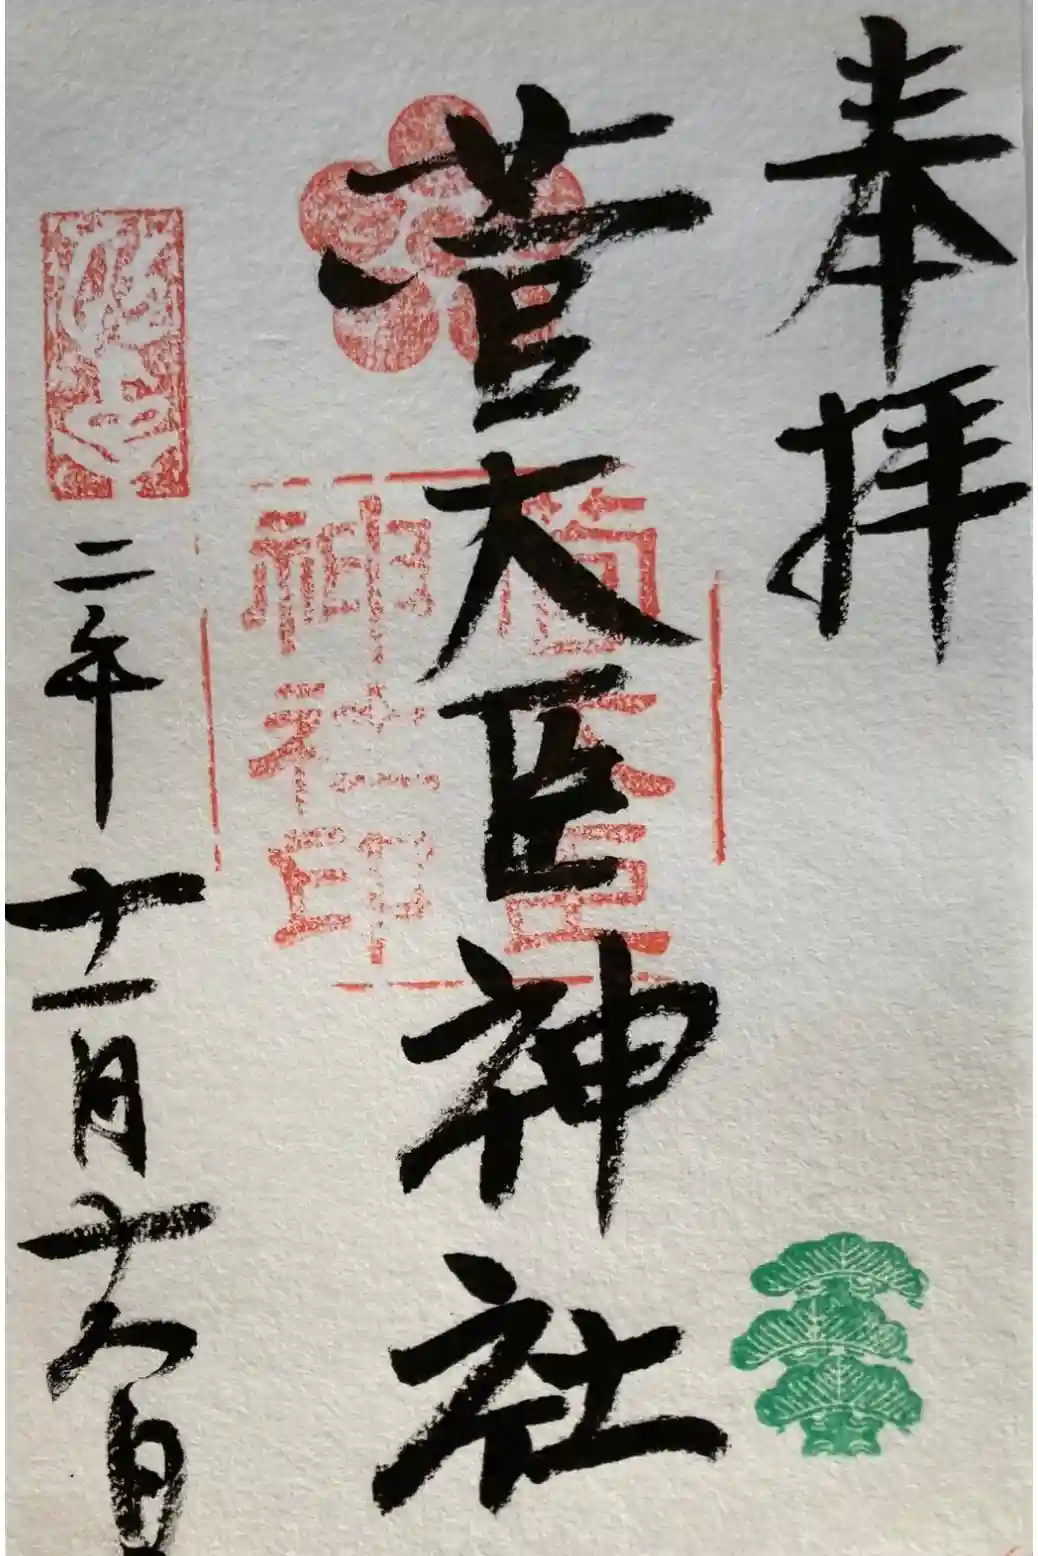 奉拝
菅大臣神社
菅大臣
神社印
二年十一月十八日